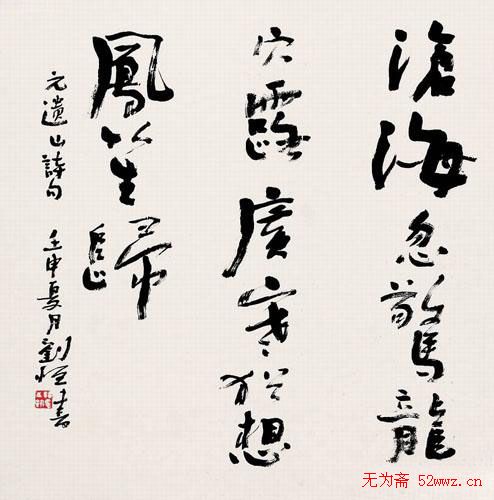 滄海忽驚龍
穴露廣寒猶想
鳳笙歸
元遺山詩句 壬申夏月劉恒書
无为斋 52wwz.cn